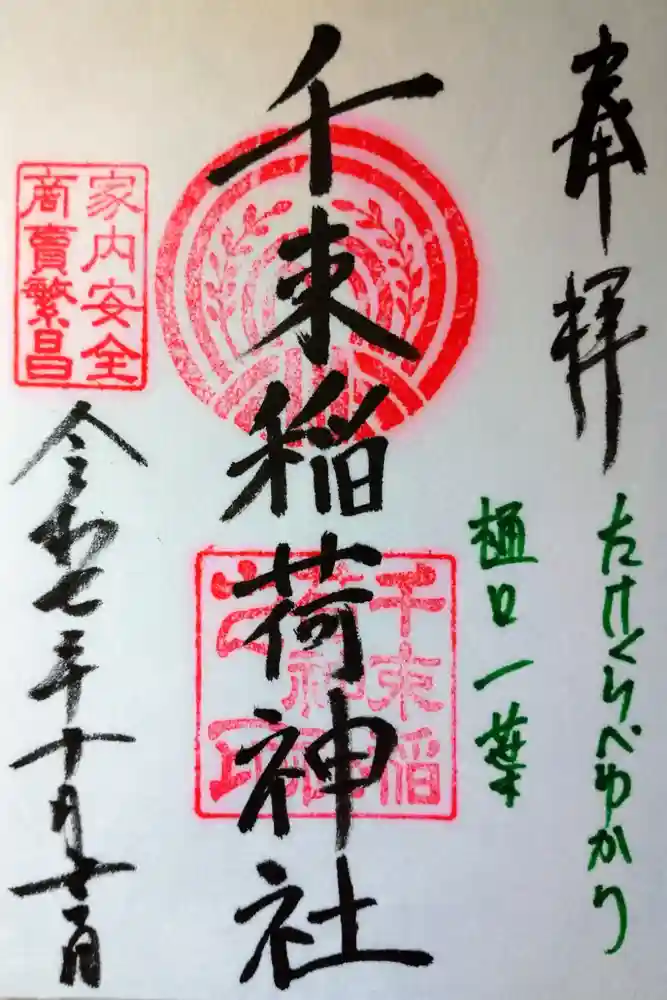 奉拝
たけくらべゆかり
樋口一葉
千束稲荷神社
千束稲
荷神社
之印
家内安全
商賣繁昌
令和七年十月